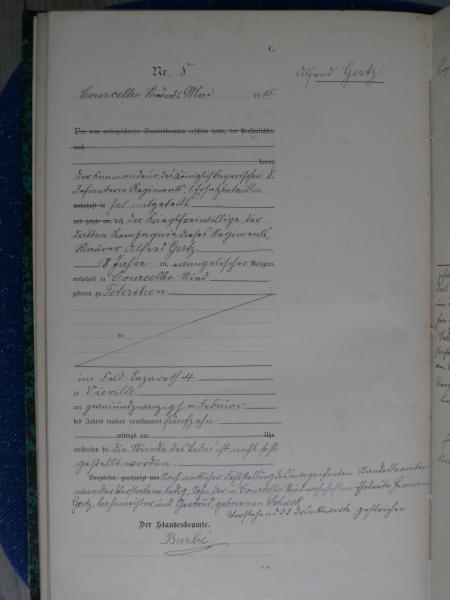 C.
Nr. 8
Alfred Gertz
Courcelles Nied am 6. Mai 1915
Vor dem unterzeichneten Standesbeamten erschien heute, der Persönlichkeit
nach
kannt,
Der Kommandeur des Königlich bayerischen 8.
Infanterie Regiments, Ersatzbataillon
wohnhaft in hat mitgeteilt
und zeigte an, daß der Kriegsfreiwillige der
dritten Kompagnie dieses Regiments
Maurer Alfred Gertz
18 Jahre alt, evangelischer Religion,
wohnhaft in Courcelles Nied
geboren zu Teterchen
de
im Feld Lazareth 4
zu Vieville
am zwanzigsten Februar
des Jahres tausend neunhundert fünfzehn
mittags um Uhr
verstorben sei. Die Stunde des Todes ist nicht fest-
gestellt worden.
Vorgelesen, genehmigt und Nach amtlicher Feststellung des unterzeichneten Standesbeamten
war der Verstorbene ledig, Sohn der in Courcelles Nied wohnhaften Eheleute Hermann
Gertz, Bahnmeister und Gertrud geborenen Schack
Vorstehend 22 Druckworte gestrichen
Der Standesbeamte.
Barbé